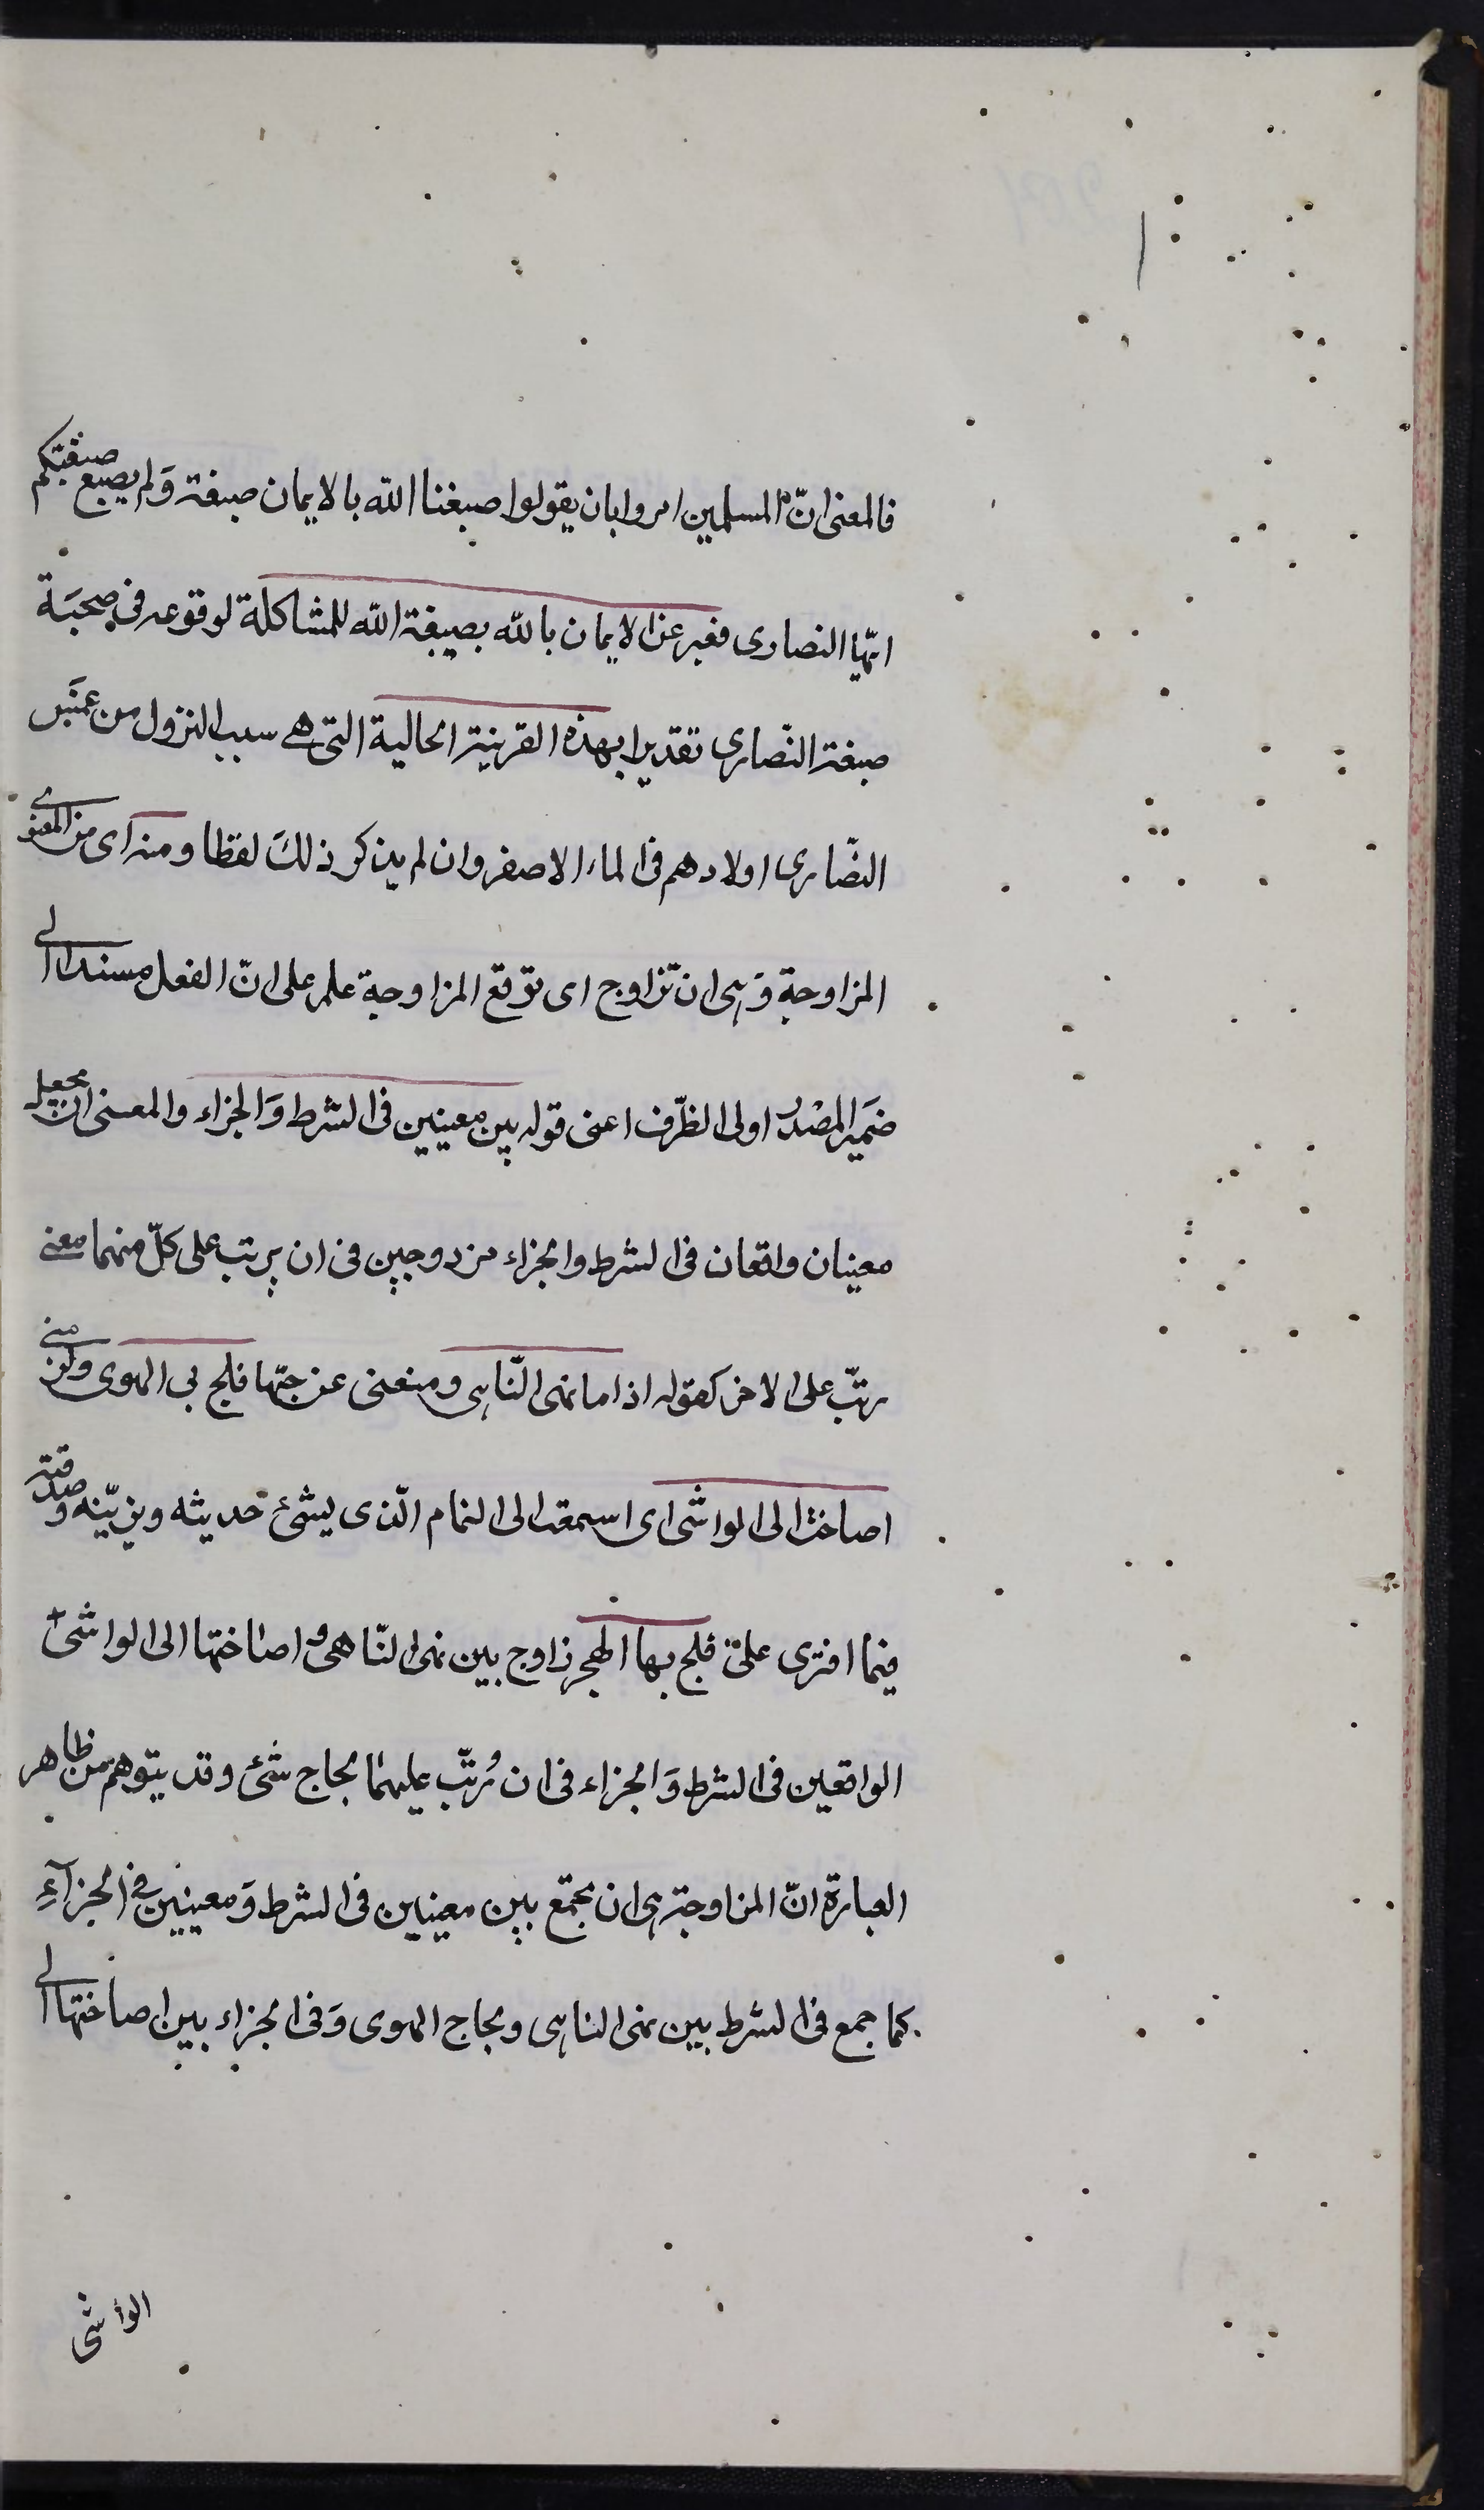 فالمعنى انّ المسلمين امروا بان يقولوا صبغنا الله بالايمان صبغة وَلم يصبغ صبغتكم
ايّها النصارى فعبر عن الايمان بالله بصبغة الله للمشاكلة لوقوعه فى صحبَة
صبغة النّصارى تقديرا بهذه القرينة الحالية التى هے سبب النزول من غمَس
النّصارى اولادهم فى الماء الاصفر وان لم يذكر ذلكَ لفظا ومنه اى من المعنوے
المزاوجة وَهى ان تزاوج اى توقع المزاوجة علم على انّ الفعل مسندا الى
ضمَير المصْدر او الى الظّرف اعنى قوله بين معنيين فى الشرط وَالجزاء والمعنى ان يجعل
معنيان واقعان فى الشرط والجزاء مزدوجين فى ان يرتب على كلّ منهما معنے
رتّب على الاخر كقوله اذا ما نهى النّاهى ومنعنى عن حبّها فلج بى الهوى ولزمنے
اصاخت الى الواشى اى اسمعت الى النمام الّذى يشئ حديثه ويزيّنه وصدقته
فيما افترى علىّ فلج بها الهجر زاوج بين نهى النّاهى و اصاختها الى الواشى
الواقعين فى الشرط وَالجزاء فى ان رُتّب عليهما لجاج شئ وقد يتوهم من ظاهر
العبارة انّ المزاوجة هى ان يجمع بين معنيين فى الشرط وَمعنيين فے الجزآءِ
كما جمع فى الشرط بين نهى الناهى ولجاج الهوى وَفى الجزاء بين اصاختها الى
الواشى